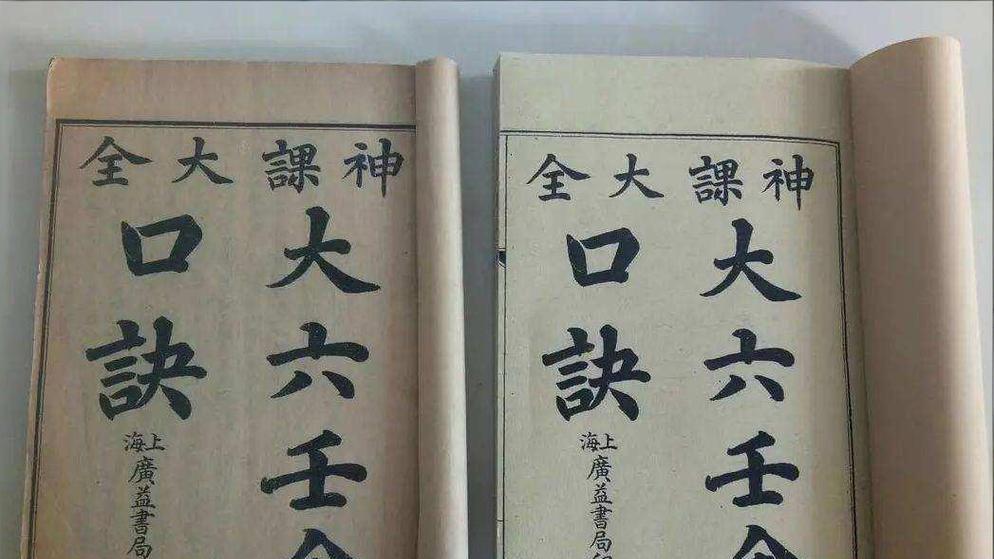 神課大全
大六壬
口訣
上海廣益書局
神課大全
大六壬
口訣
上海廣益書局